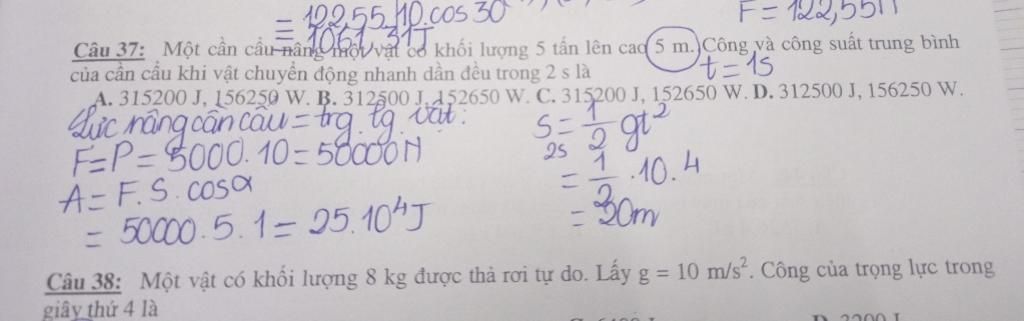 = 122,55.10.cos 30
= 1061,31J
F = 122,55N
Câu 37: Một cần cẩu nâng một vật có khối lượng 5 tấn lên cao 5 m. Công và công suất trung bình
t = 1s
của cần cẩu khi vật chuyển động nhanh dần đều trong 2 s là
A. 315200 J, 156250 W. B. 312500 J, 152650 W. C. 315200 J, 152650 W. D. 312500 J, 156250 W.
Lực nâng cần cẩu = trg. lg. vật:
F=P= 5000.10 = 50000N
A = F.S.cosα
= 50000.5.1 = 25.10⁴J
S = 1/2 gt²
2s
= 1/2 .10.4
= 20m
Câu 38: Một vật có khối lượng 8 kg được thả rơi tự do. Lấy g = 10 m/s². Công của trọng lực trong
giây thứ 4 là